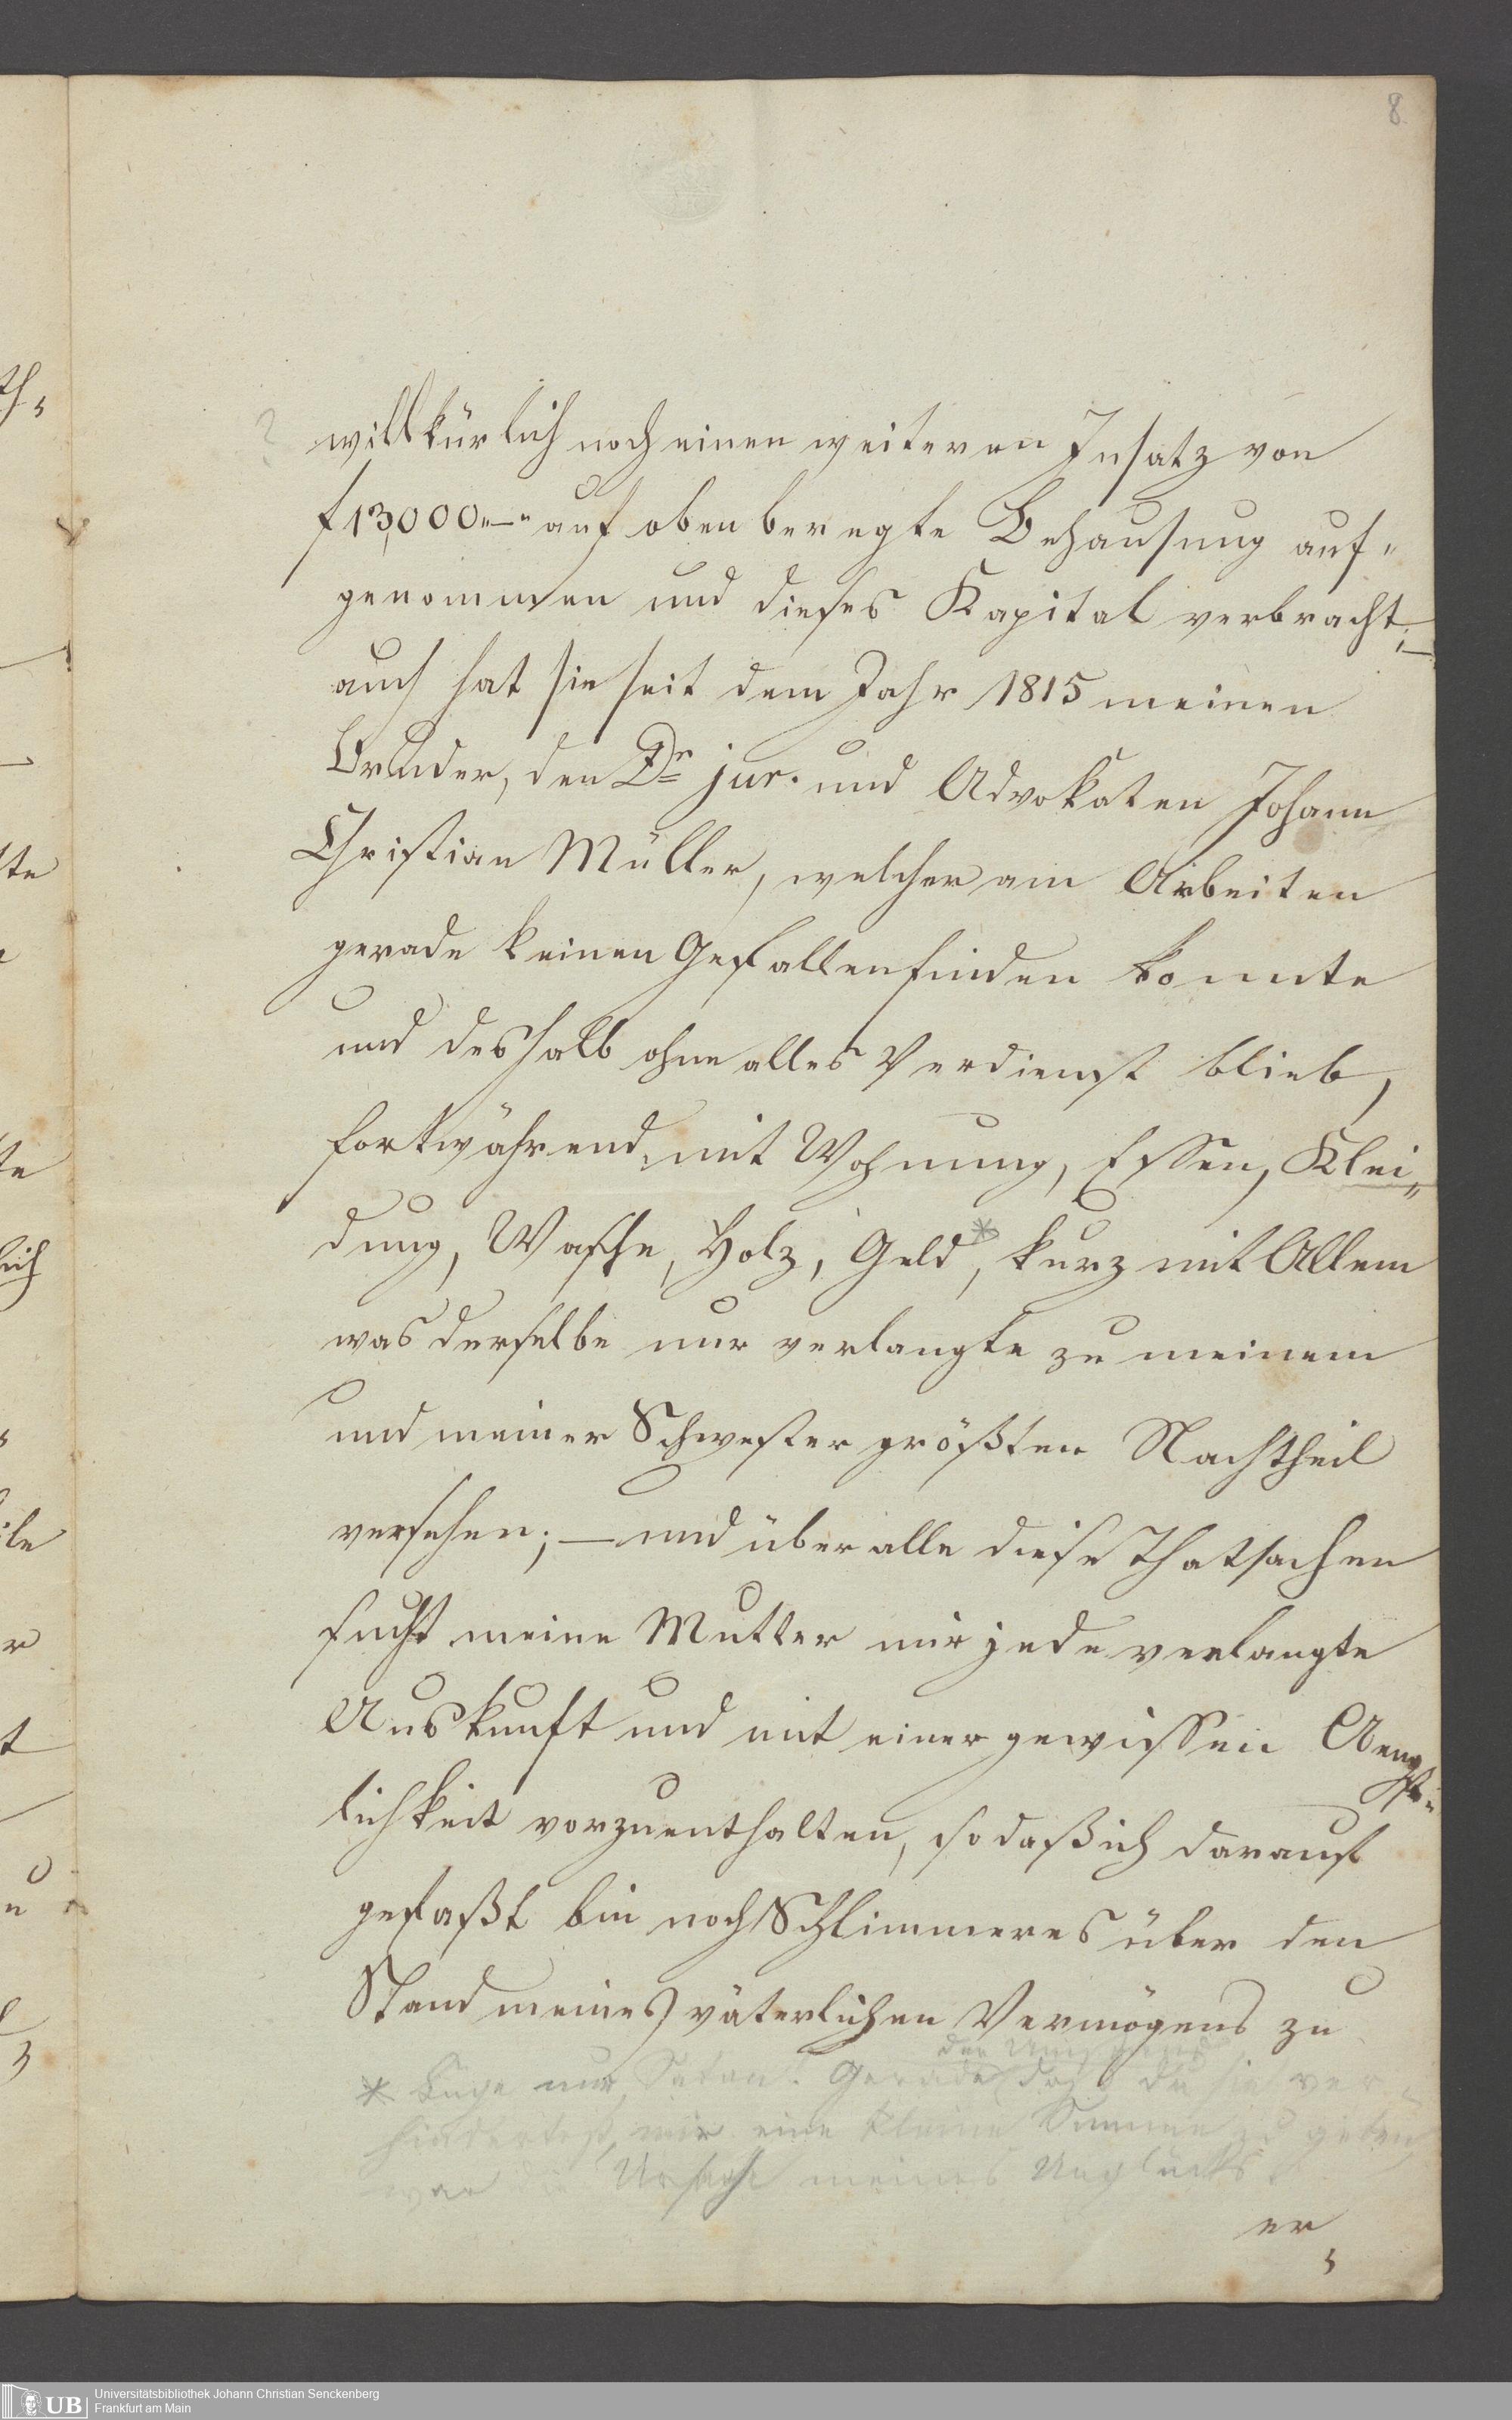 8.
willkürlich noch einen weiteren Insatz von
f 13,000 „—„ auf oben beregte Behausung auf„
genommen und dieses Kapital verbracht; —
auch hat sie seit dem Jahr 1815 meinen
Bruder, den Dr jur. und Advokaten Johann
Christian Müller, welcher am Arbeiten
gerade keinen Gefallen finden konnte
und deshalb ohne alles Verdienst blieb,
fortwährend mit Wohnung, Essen, Klei„
dung, Wasche, Holz, Geld *, kurz mit Allem
was derselbe nur verlangte zu meinem
und meiner Schwester größten Nachtheil
versehen; — und über alle diese Thatsachen
sucht meine Mutter mir jede verlangte
Auskunft und mit einer gewissen Aengst„
lichkeit vorzuenthalten, so daß ich darauf
gefaßt bin noch Schlimmeres über den
Stand meines väterlichen Vermögens zu
der Umstand
* Lüge nur, Satan! Gerade daß du sie ver„
hindertest, mir eine kleine Summe zu geben,
war die Ursache meines Unglücks.
er
Universitätsbibliothek Johann Christian Senckenberg
Frankfurt am Main
UB